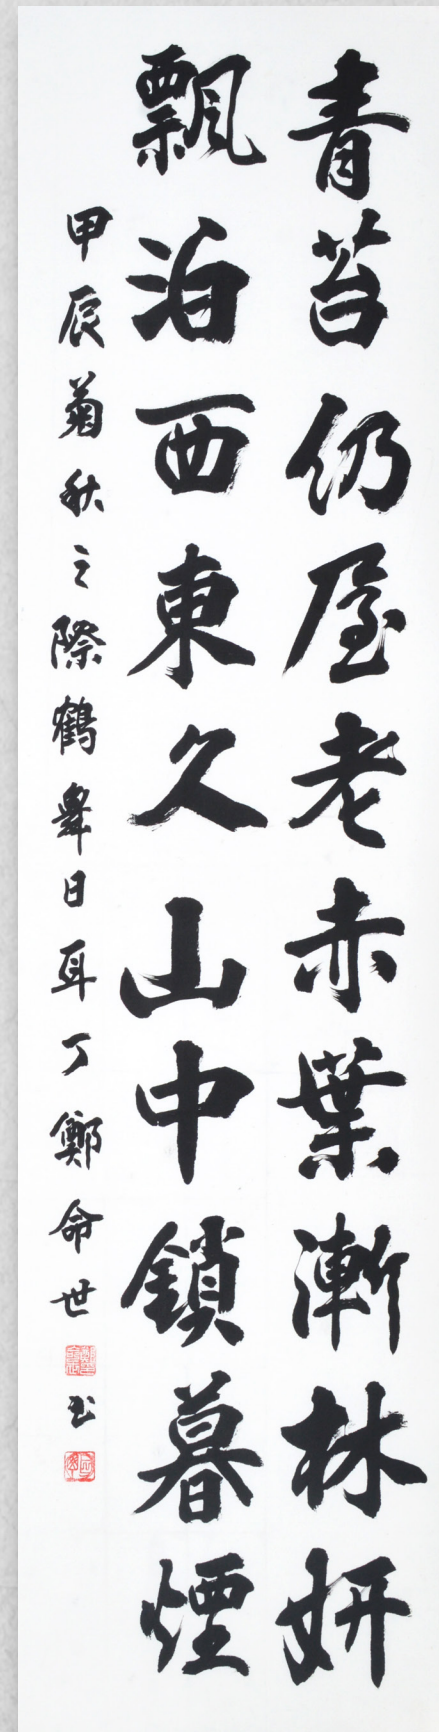 青苔仍屋老赤葉漸林妍
飄泊西東久山中鎖暮煙
甲辰菊秋之際鶴舞日耳丁鄭命世
书